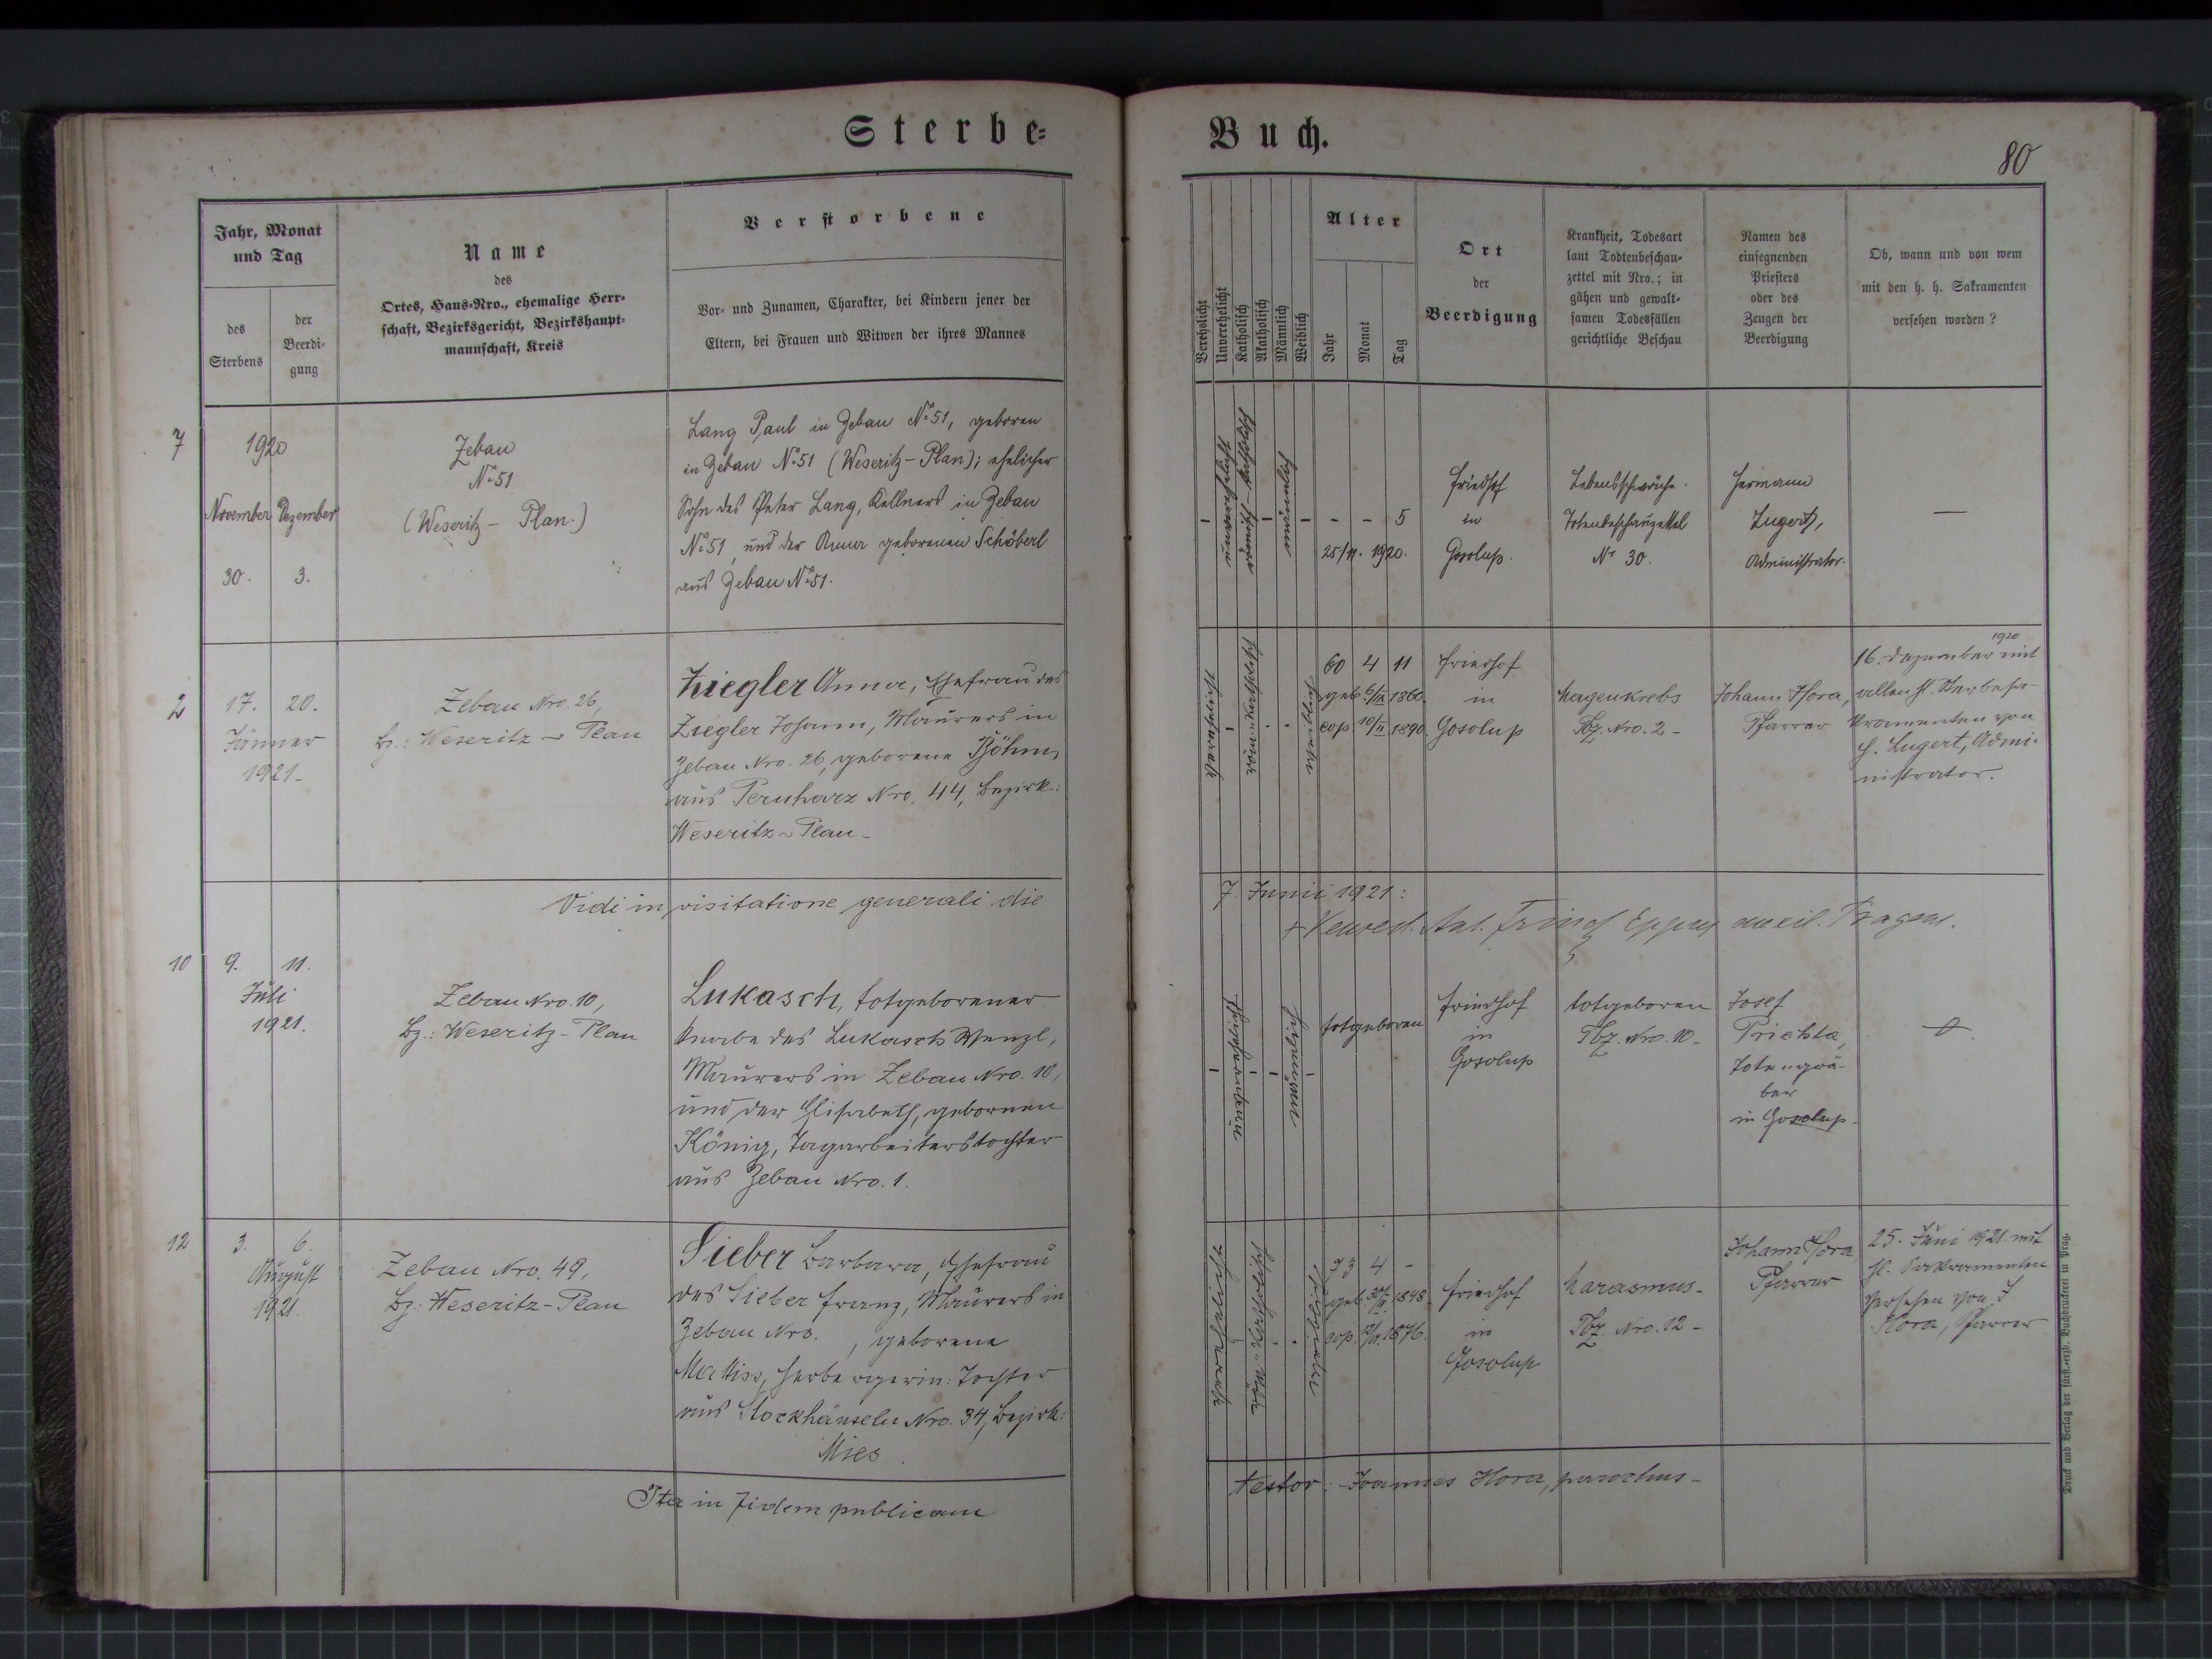 Sterbe-
Jahr, Monat
und Tag
des
Sterbens
der
Beerdi-
gung
Name
des
Ortes, Haus-Nro., ehemalige Herr-
schaft, Bezirksgericht, Bezirkshaupt-
mannschaft, Kreis
Verstorbene
Vor- und Zunamen, Charakter, bei Kindern jener der
Eltern, bei Frauen und Witwen der ihres Mannes
7
1920
November Dezember
30. 3.
Zebau
No 51
(Weseritz - Plan.)
Lang Paul in Zebau No 51, geboren
in Zebau No 51 (Weseritz - Plan); ehelicher
Sohn des Peter Lang, Kellners in Zebau
No 51 und der Anna geborenen Schöberl
aus Zebau No 51.
2
17. 20.
Jänner
1921-
Zebau Nro. 26,
Bz.: Weseritz - Plan
Ziegler Anna, Ehefrau des
Ziegler Johann, Maurers in
Zebau Nro. 26, geborene Böhm,
aus Pernharz Nro. 44, Bezirk:
Weseritz - Plan -
Vidi in visitatione generali die
10
9. 11.
Juli
1921.
Zebau Nro. 10,
Bz.: Weseritz - Plan
Lukasch, totgeborener
Knabe des Lukasch Wenzl,
Maurers in Zebau Nro. 10,
und der Elisabeth, gebornen
König, Tagarbeiterstochter
aus Zebau Nro. 1.
12
3. 6.
August
1921.
Zebau Nro. 49,
Bz: Weseritz - Plan
Sieber Barbara, Ehefrau
des Sieber Franz, Maurers in
Zebau Nro. , geborene
Mattiss, Tochter
aus Stockhäuseln Nro. 34, Bezirk:
Mies
Ita in fidem publicam
Buch.
80
Verehelicht
Unverehelicht
Katholisch
Akatholisch
Männlich
Weiblich
Alter
Jahr
Monat
Tag
Ort
der
Beerdigung
Krankheit, Todesart
laut Todtenbeschau-
zettel mit Nro.; in
gähen und gewalt-
samen Todesfällen
gerichtliche Beschau
Namen des
einsegnenden
Priesters
oder des
Zeugen der
Beerdigung
Ob, wann und von wem
mit den h. h. Sakramenten
versehen worden?
- unverehelicht römisch-katholisch - männlich -
- - 5
25/11. 1920.
Friedhof
in
Gosolup.
Lebensschwäche.
Totenbeschauzettel
Nr 30.
Hermann
Lugert,
Administrator.
—
verehelicht
röm.-katholisch
weiblich
60 4 11
geb. 6/IX 1860.
cop. 10/II 1890.
Friedhof
in
Gosolup
Magenkrebs
Tbz. Nro. 2 -
Johann Hora,
Pfarrer
1920
16. Dezember mit
allen hl. Sterbesa-
kramenten von
H. Lugert, Admi-
nistrator.
7. Junii 1921:
totgeboren
Friedhof
in
Gosolup
totgeboren
Tbz. Nro. 10.
Josef
Trichta,
Totengrä-
ber
in Gosolup.
verehelicht
röm.-katholisch
weiblich
73 4 -
1848
cop. 1876.
Friedhof
in
Gosolup
Marasmus -
Tbz. Nro. 12 -
Johann Hora,
Pfarrer
25. Juni 1921 mit
hl. Sakramenten
versehen von J
Hora, Pfarrer
testor: Joannes Hora, parochus -
Druck und Verlag der fürst.-erzb. Buchdruckerei in Prag.